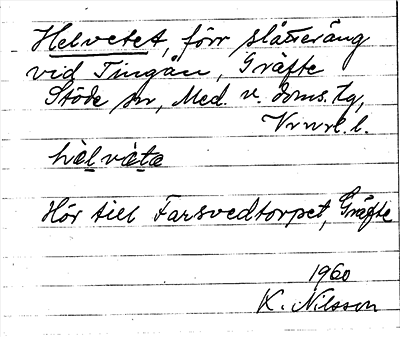 Helvetet, förr slåtteräng
vid Tingån, Gräfte
Stöde sn, Med. v. doms. tg,
l.
hèlvá̀ta
Hör till Farsvedtorpet, Gräfte
1960
K. Nilsson